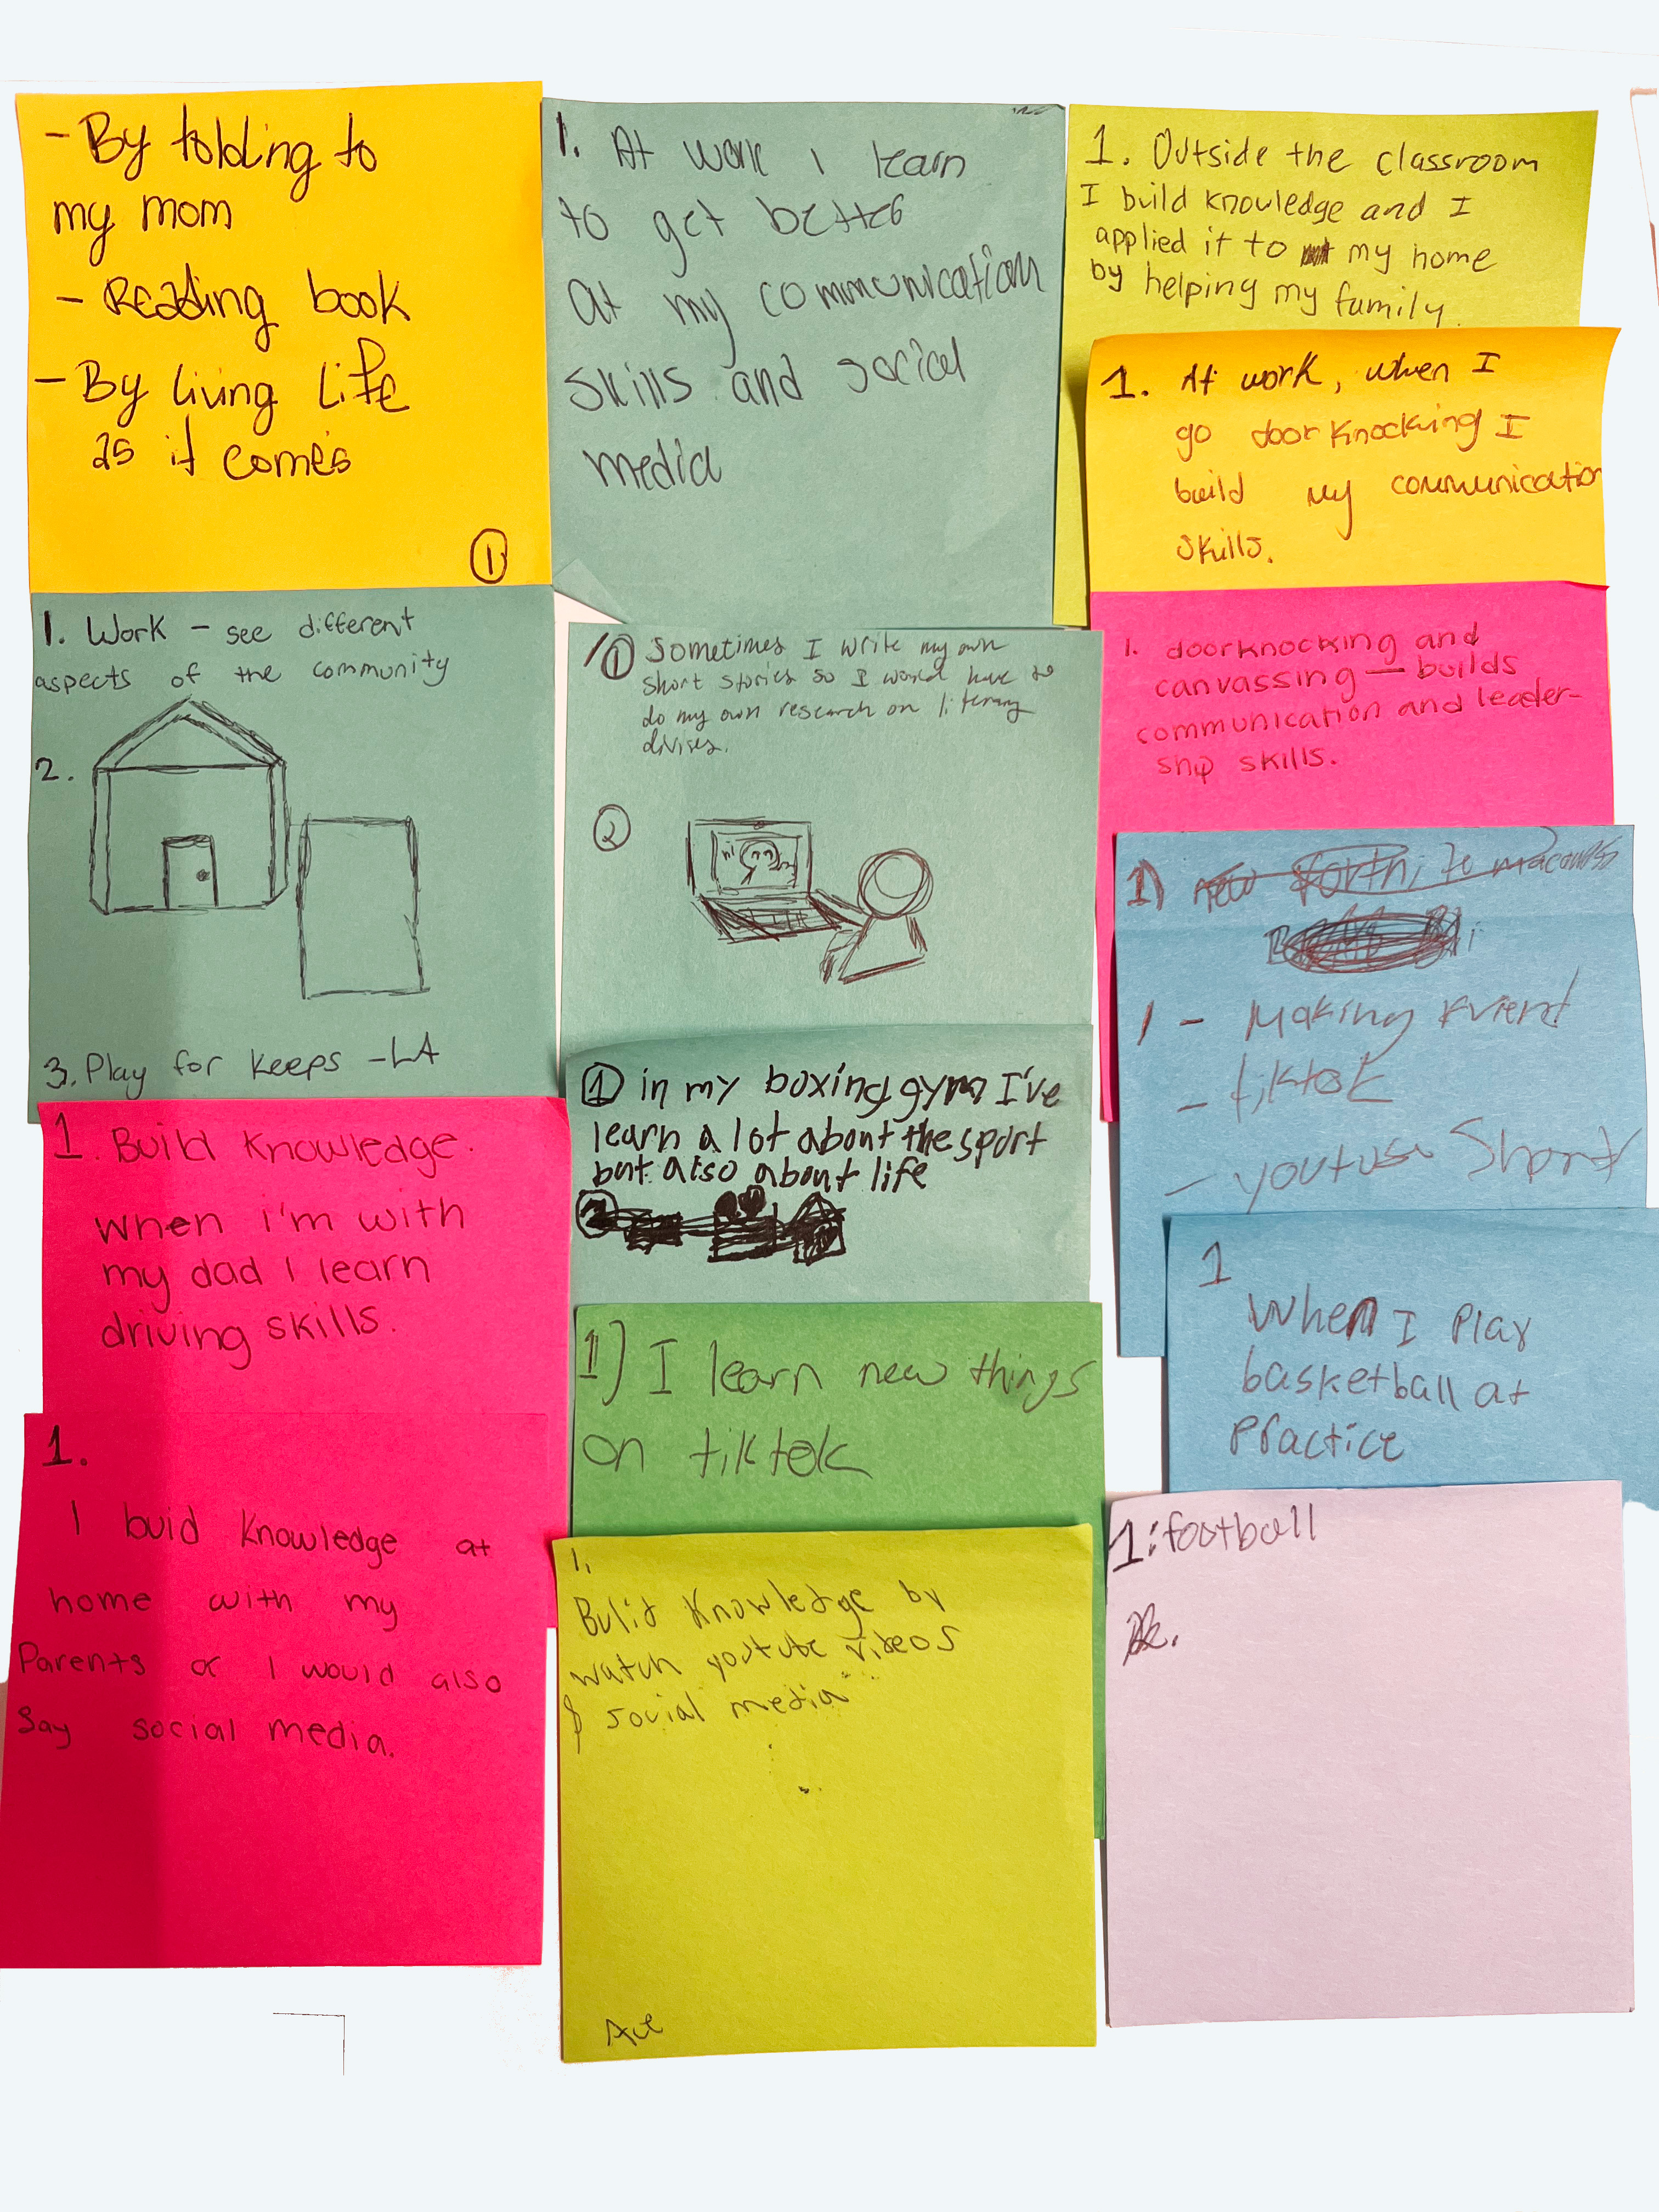 - By tolding to
my mom
- Reading book
- By living Life
as it comes
1
1. At work I learn
to get better
at my communication
skills and social
media
1. Outside the classroom
I build knowledge and I
applied it to my home
by helping my family.
1. At work, when I
go door knocking I
build my communication
skills.
1. Work - see different
aspects of the community
2.
3. Play for keeps - LA
1 Sometimes I write my own
short stories so I would have to
do my own research on literary
divises.
2
hi
1. doorknocking and
canvassing — builds
communication and leader-
ship skills.
1)
1 - Making friend
- tiktok
- youtube Short
1 in my boxing gym I've
learn a lot about the sport
but also about life
1. Build knowledge.
when i'm with
my dad I learn
driving skills.
1) I learn new things
on tiktok
1
When I Play
basketball at
Practice
1.
I buid knowledge at
home with my
Parents or I would also
say social media.
1.
Bulid knowledge by
watch youtube videos
& social media
1: football